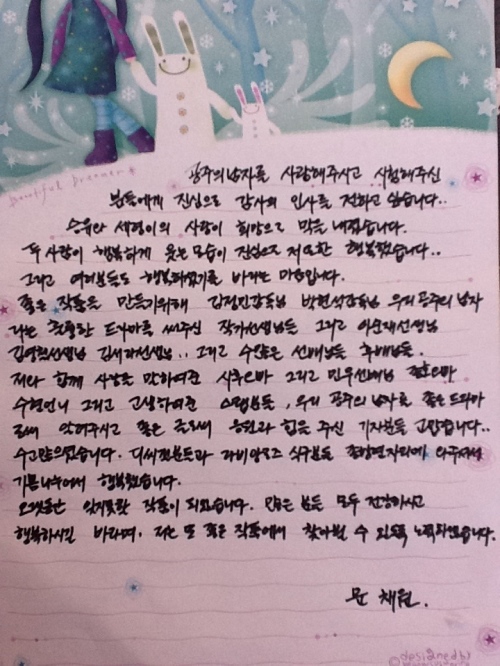 Beautiful Dreamer
공주의남자를 사랑해주시고 시청해주신
분들에게 진심으로 감사의 인사를 전하고 싶습니다..
승유와 세령이의 사랑이 희망으로 막을 내렸습니다.
두 사람이 행복하게 웃는 모습이 진심으로 저또한 행복했습니다..
그리고 여러분들도 행복하셨기를 바라는 마음입니다.
좋은 작품을 만들기위해 김정민감독님 박현석감독님 우리 공주의 남자
라는 훌륭한 드라마를 써주신 작가선생님들 그리고 이순재선생님
김영철선생님 김서라선생님.. 그리고 수많은 선배님들 후배님들.
저와 함께 사랑을 말하여준 시후오빠 그리고 민우선배님 종호오빠
수현언니 그리고 고생하여준 스탭분들, 우리 공주의 남자를 좋은 드라마
로써 알려주시고 좋은 글로써 응원과 힘을 주신 기자분들 고맙습니다..
수고많으셨습니다. 디씨갤분들과 식구분들 종방연자리에 와주셔서
기쁨나누어서 행복했습니다.
오랫동안 잊지못할 작품이 되었습니다. 많은 분들 모두 건강하시고
행복하시길 바라며, 저는 또 좋은 작품에서 찾아뵐 수 있도록 노력하겠습니다.
문 채원.
©designed by